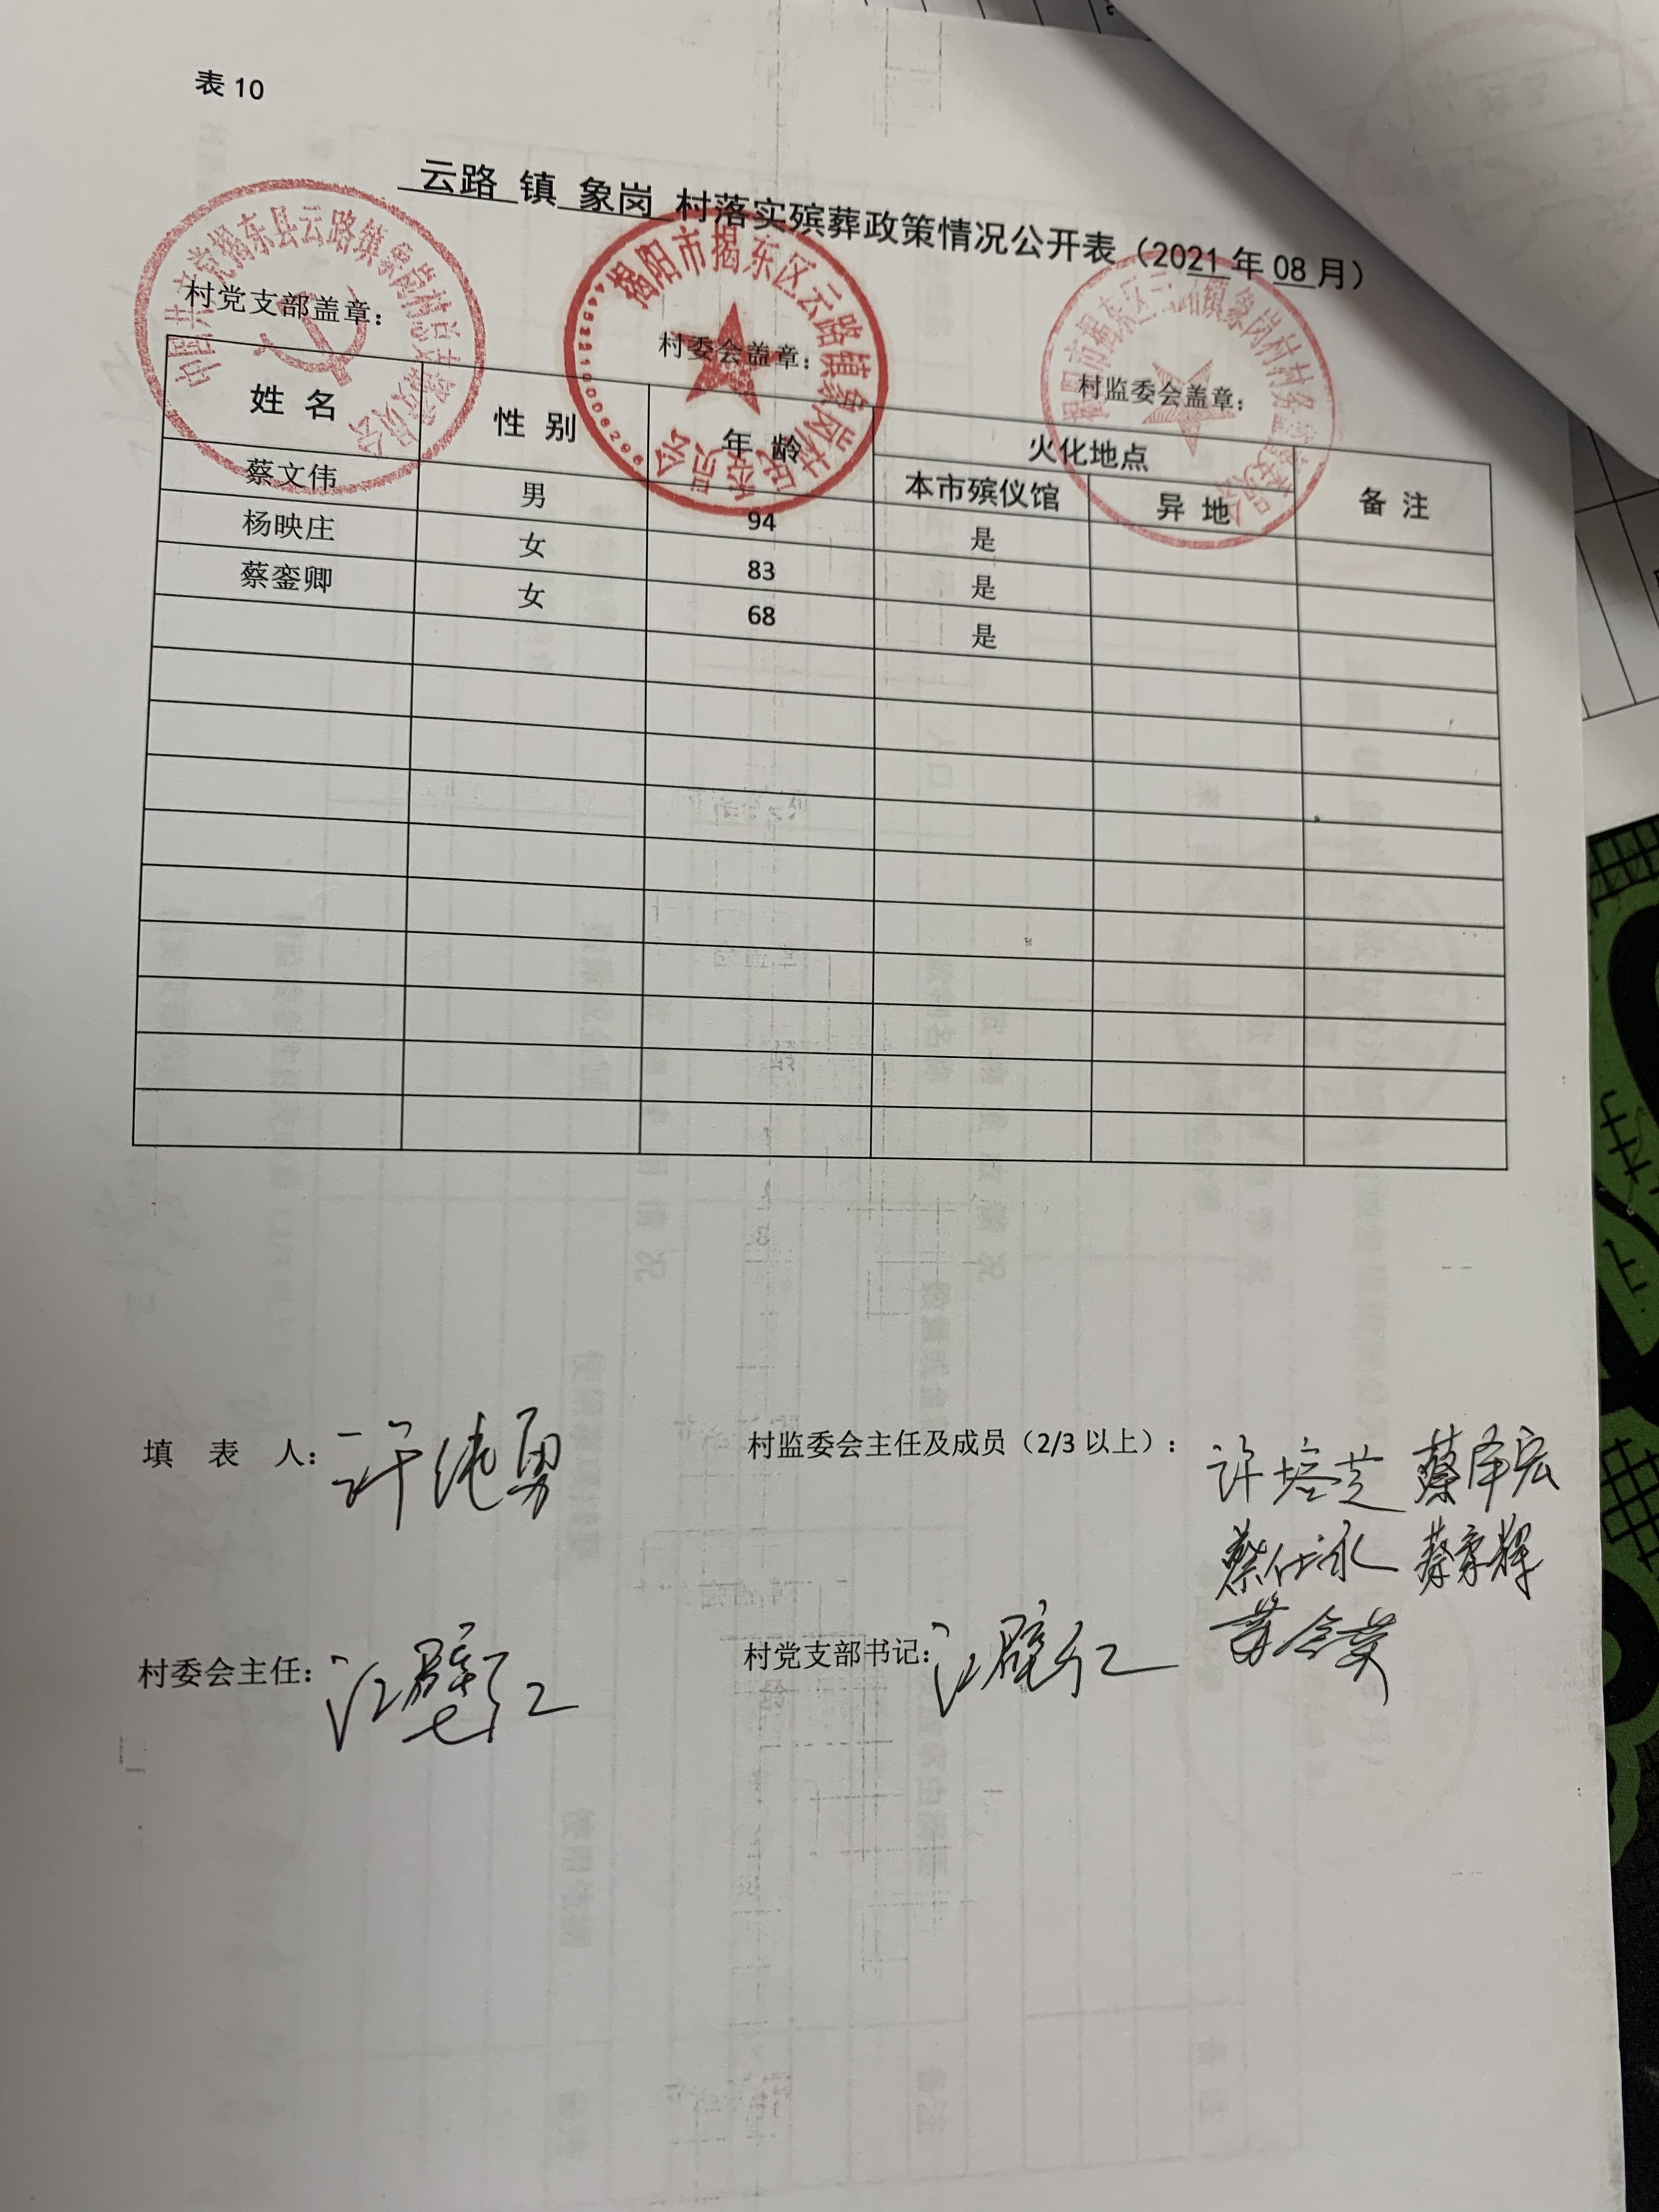 表 10
云路 镇 象岗 村落实殡葬政策情况公开表（2021 年 08 月）
村党支部盖章： 村委会盖章： 村监委会盖章：
中国共产党揭东县云路镇象岗村总支部委员会
揭阳市揭东区云路镇象岗村民委员会
揭阳市揭东区云路镇象岗村村务监督委员会
姓 名 性 别 年 龄 火化地点 备 注
本市殡仪馆 异 地
蔡文伟 男 94 是
杨映庄 女 83 是
蔡銮卿 女 68 是
填 表 人：许纯勇 村监委会主任及成员（2/3 以上）：许培芝 蔡泽宏
蔡仕泳
村委会主任：江壁红 村党支部书记：江壁红